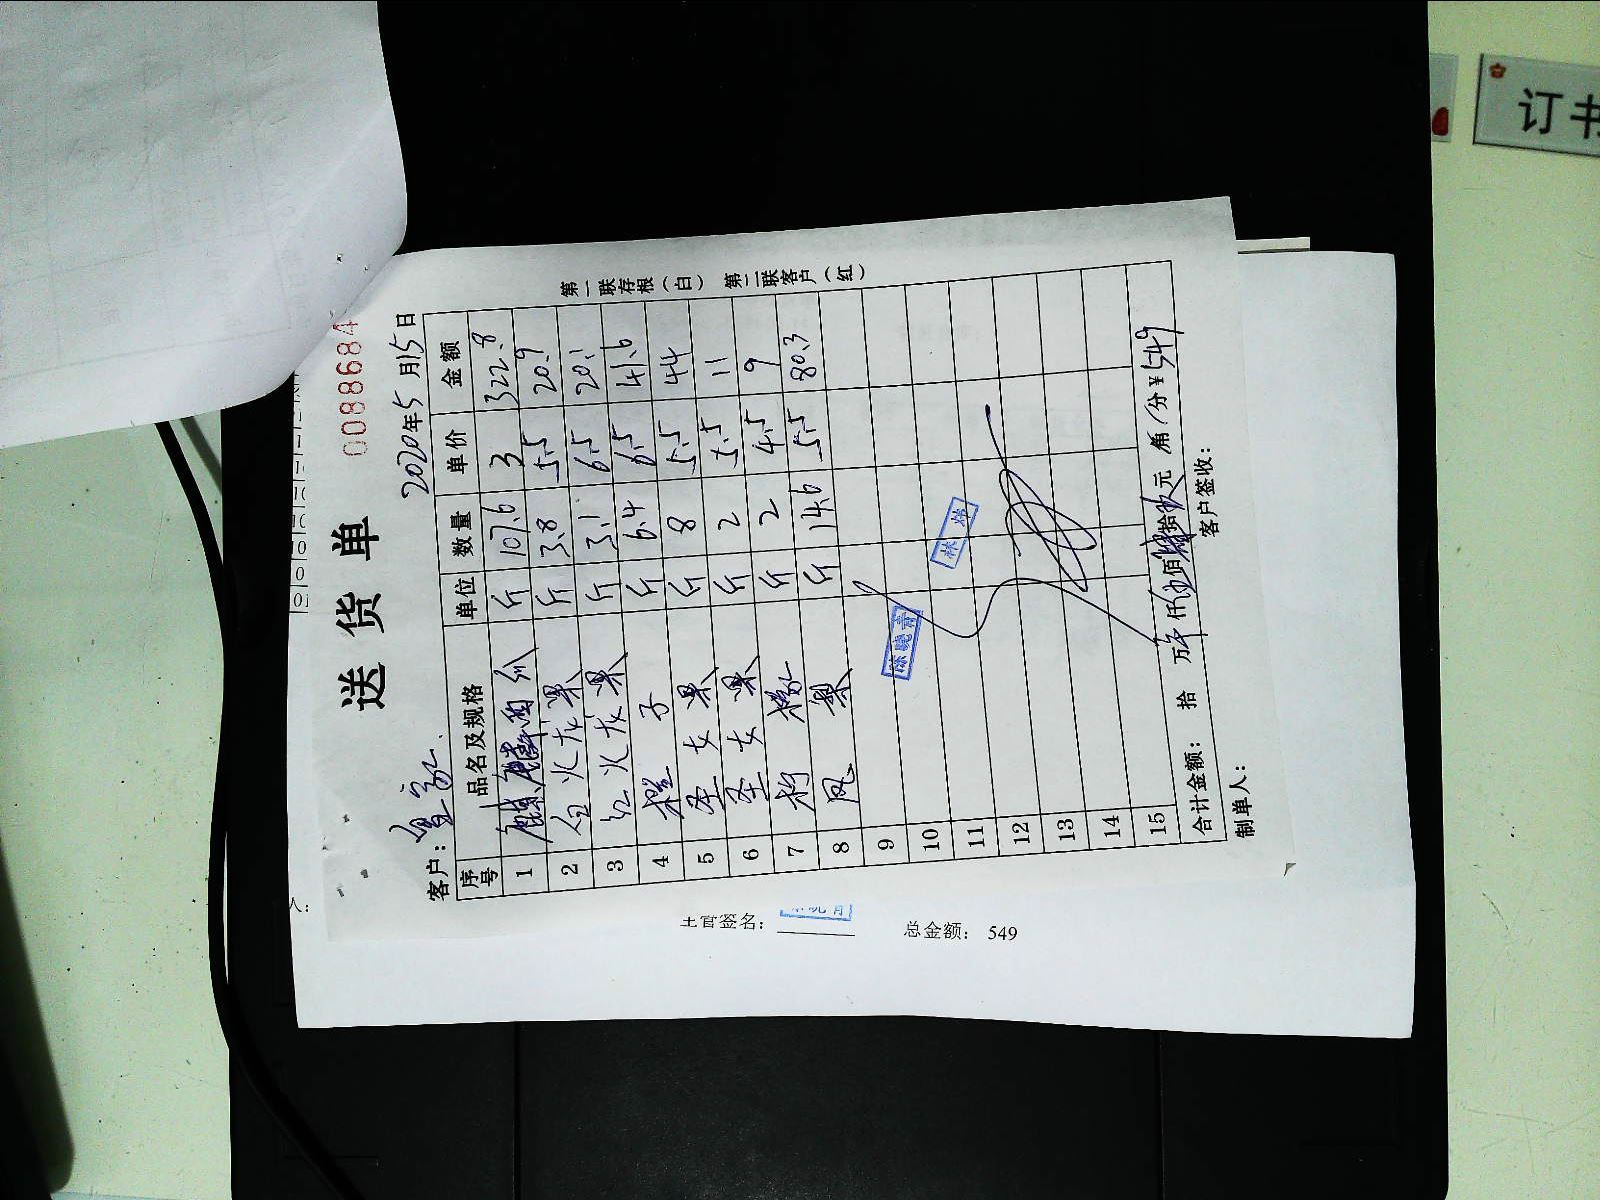 送货单
0088684
客户：
2020年5月15日
序号 品名及规格 单位 数量 单价 金额
1 麒麟西瓜 斤 107.6 3 322.8
2 白火龙果 斤 3.8 5.5 20.9
3 红火龙果 斤 3.1 6.5 20.1
4 橙子 斤 6.4 6.5 41.6
5 圣女果 斤 8 5.5 44
6 圣女果 斤 2 5.5 11
7 斤 2 4.5 9
8 凤梨 斤 14.6 5.5 80.3
9
10
11
12
13
14
15
合计金额： 拾 万 仟 佰 拾 元 角 分 ¥549
制单人： 客户签收：
第一联存根（白） 第二联客户（红）
陈晓青
林炜
主管签名：
总金额： 549
人：
订书